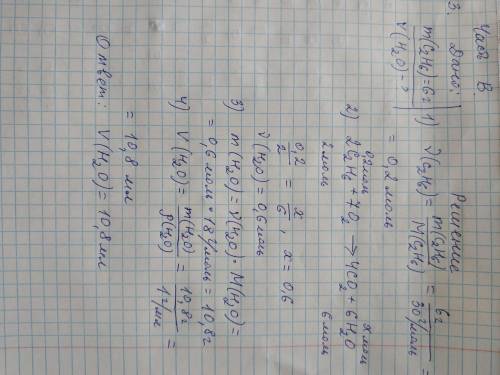 Часть В.
3. Дано: Решение
m(C₂H₆) = 6г 1) ν(C₂H₆) = m(C₂H₆) / M(C₂H₆) = 6г / 30 г/моль =
V(H₂O) - ? = 0,2 моль
0,2 моль x моль
2) 2C₂H₆ + 7O₂ → 4CO₂ + 6H₂O
2 моль 6 моль
0,2 / 2 = x / 6 , x = 0,6
ν(H₂O) = 0,6 моль
3) m(H₂O) = ν(H₂O) · M(H₂O) =
= 0,6 моль * 18 г/моль = 10,8г
4) V(H₂O) = m(H₂O) / ρ(H₂O) = 10,8г / 1 г/мл =
= 10,8 мл
Ответ: V(H₂O) = 10,8 мл